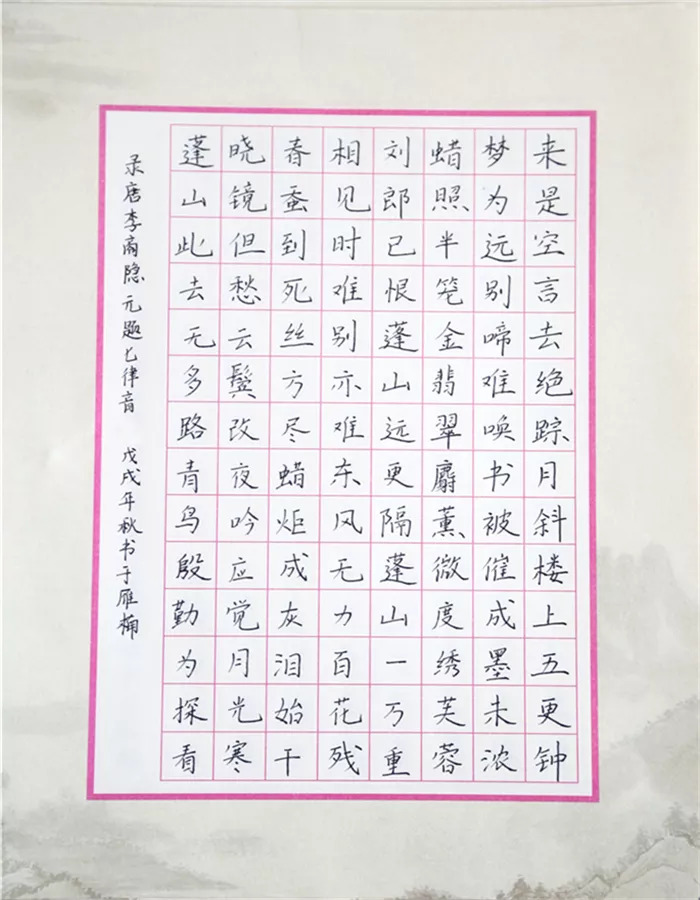 来是空言去绝踪月斜楼上五更钟
梦为远别啼难唤书被催成墨未浓
蜡照半笼金翡翠麝薰微度绣芙蓉
刘郎已恨蓬山远更隔蓬山一万重
相见时难别亦难东风无力百花残
春蚕到死丝方尽蜡炬成灰泪始干
晓镜但愁云鬓改夜吟应觉月光寒
蓬山此去无多路青鸟殷勤为探看
录唐李商隐无题七律首 戊戌年秋书于雁楠